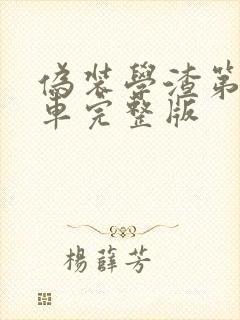 偽装學渣第
車完整版
楊薛芳